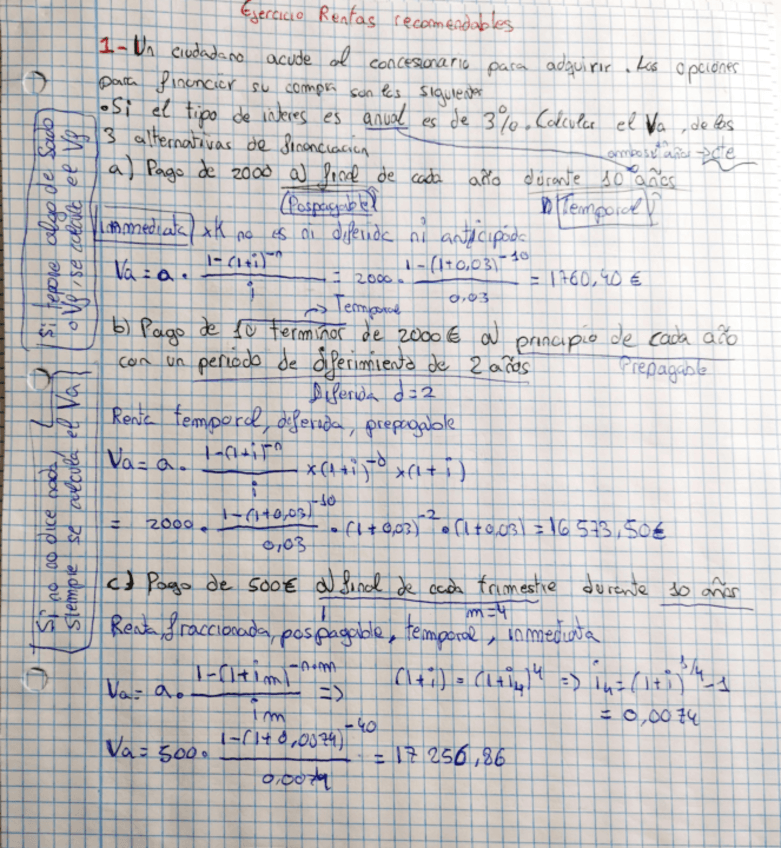 Ejercicio Rentas recomendables
1- Un ciudadano acude al concesionario para adquirir. Las opciones
para financiar su compra son les siguientes
• Si el tipo de interes es anual es de 3%. Calcular el Va, de las
3 alternativas de financiación
ambos años → cte
a) Pago de 2000 al final de cada año durante 10 años
(Pospagable) Temporal
Inmediata xK no es ni diferida ni anticipada
Va = a · 1-(1+i)^-n / i = 2000 · 1-(1+0,03)^-10 / 0,03 = 1760,40 €
→ Temporal
b) Pago de 10 terminos de 2000€ al principio de cada año
con un periodo de diferimiento de 2 años Prepagable
Diferida d=2
Renta temporal, diferida, prepagable
Va = a · 1-(1+i)^-n / i x(1+i)^-d x(1+i)
= 2000 · 1-(1+0,03)^-10 / 0,03 · (1+0,03)^-2 · (1+0,03) = 16 573,50€
c) Pago de 500€ al final de cada trimestre durante 10 años
m=4
Renta, fraccionada, pospagable, temporal, inmediata
Va = a · 1-(1+im)^-n·m / im => (1+i) = (1+i4)^4 => i4 = (1+i)^1/4 -1
= 0,0074
Va = 500 · 1-(1+0,0074)^-40 / 0,0074 = 17 256,86
Si no dice nada,
siempre se calcula el Va
Si pone algo de Saldo
o Vf, se calcula el Vf